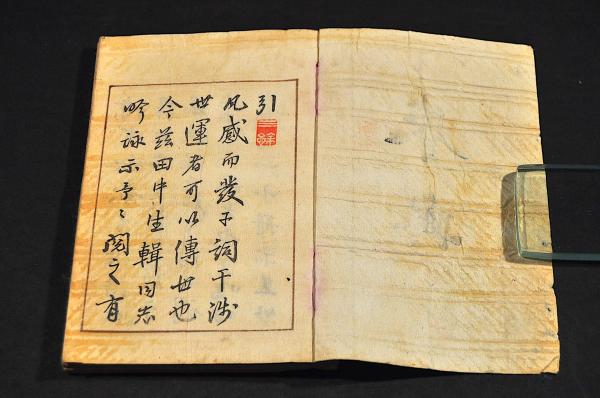 引
三餘
凡感而發于詞干涉
世運者可以傳世也
今茲田中生輯同志
吟詠示予〻閱之有